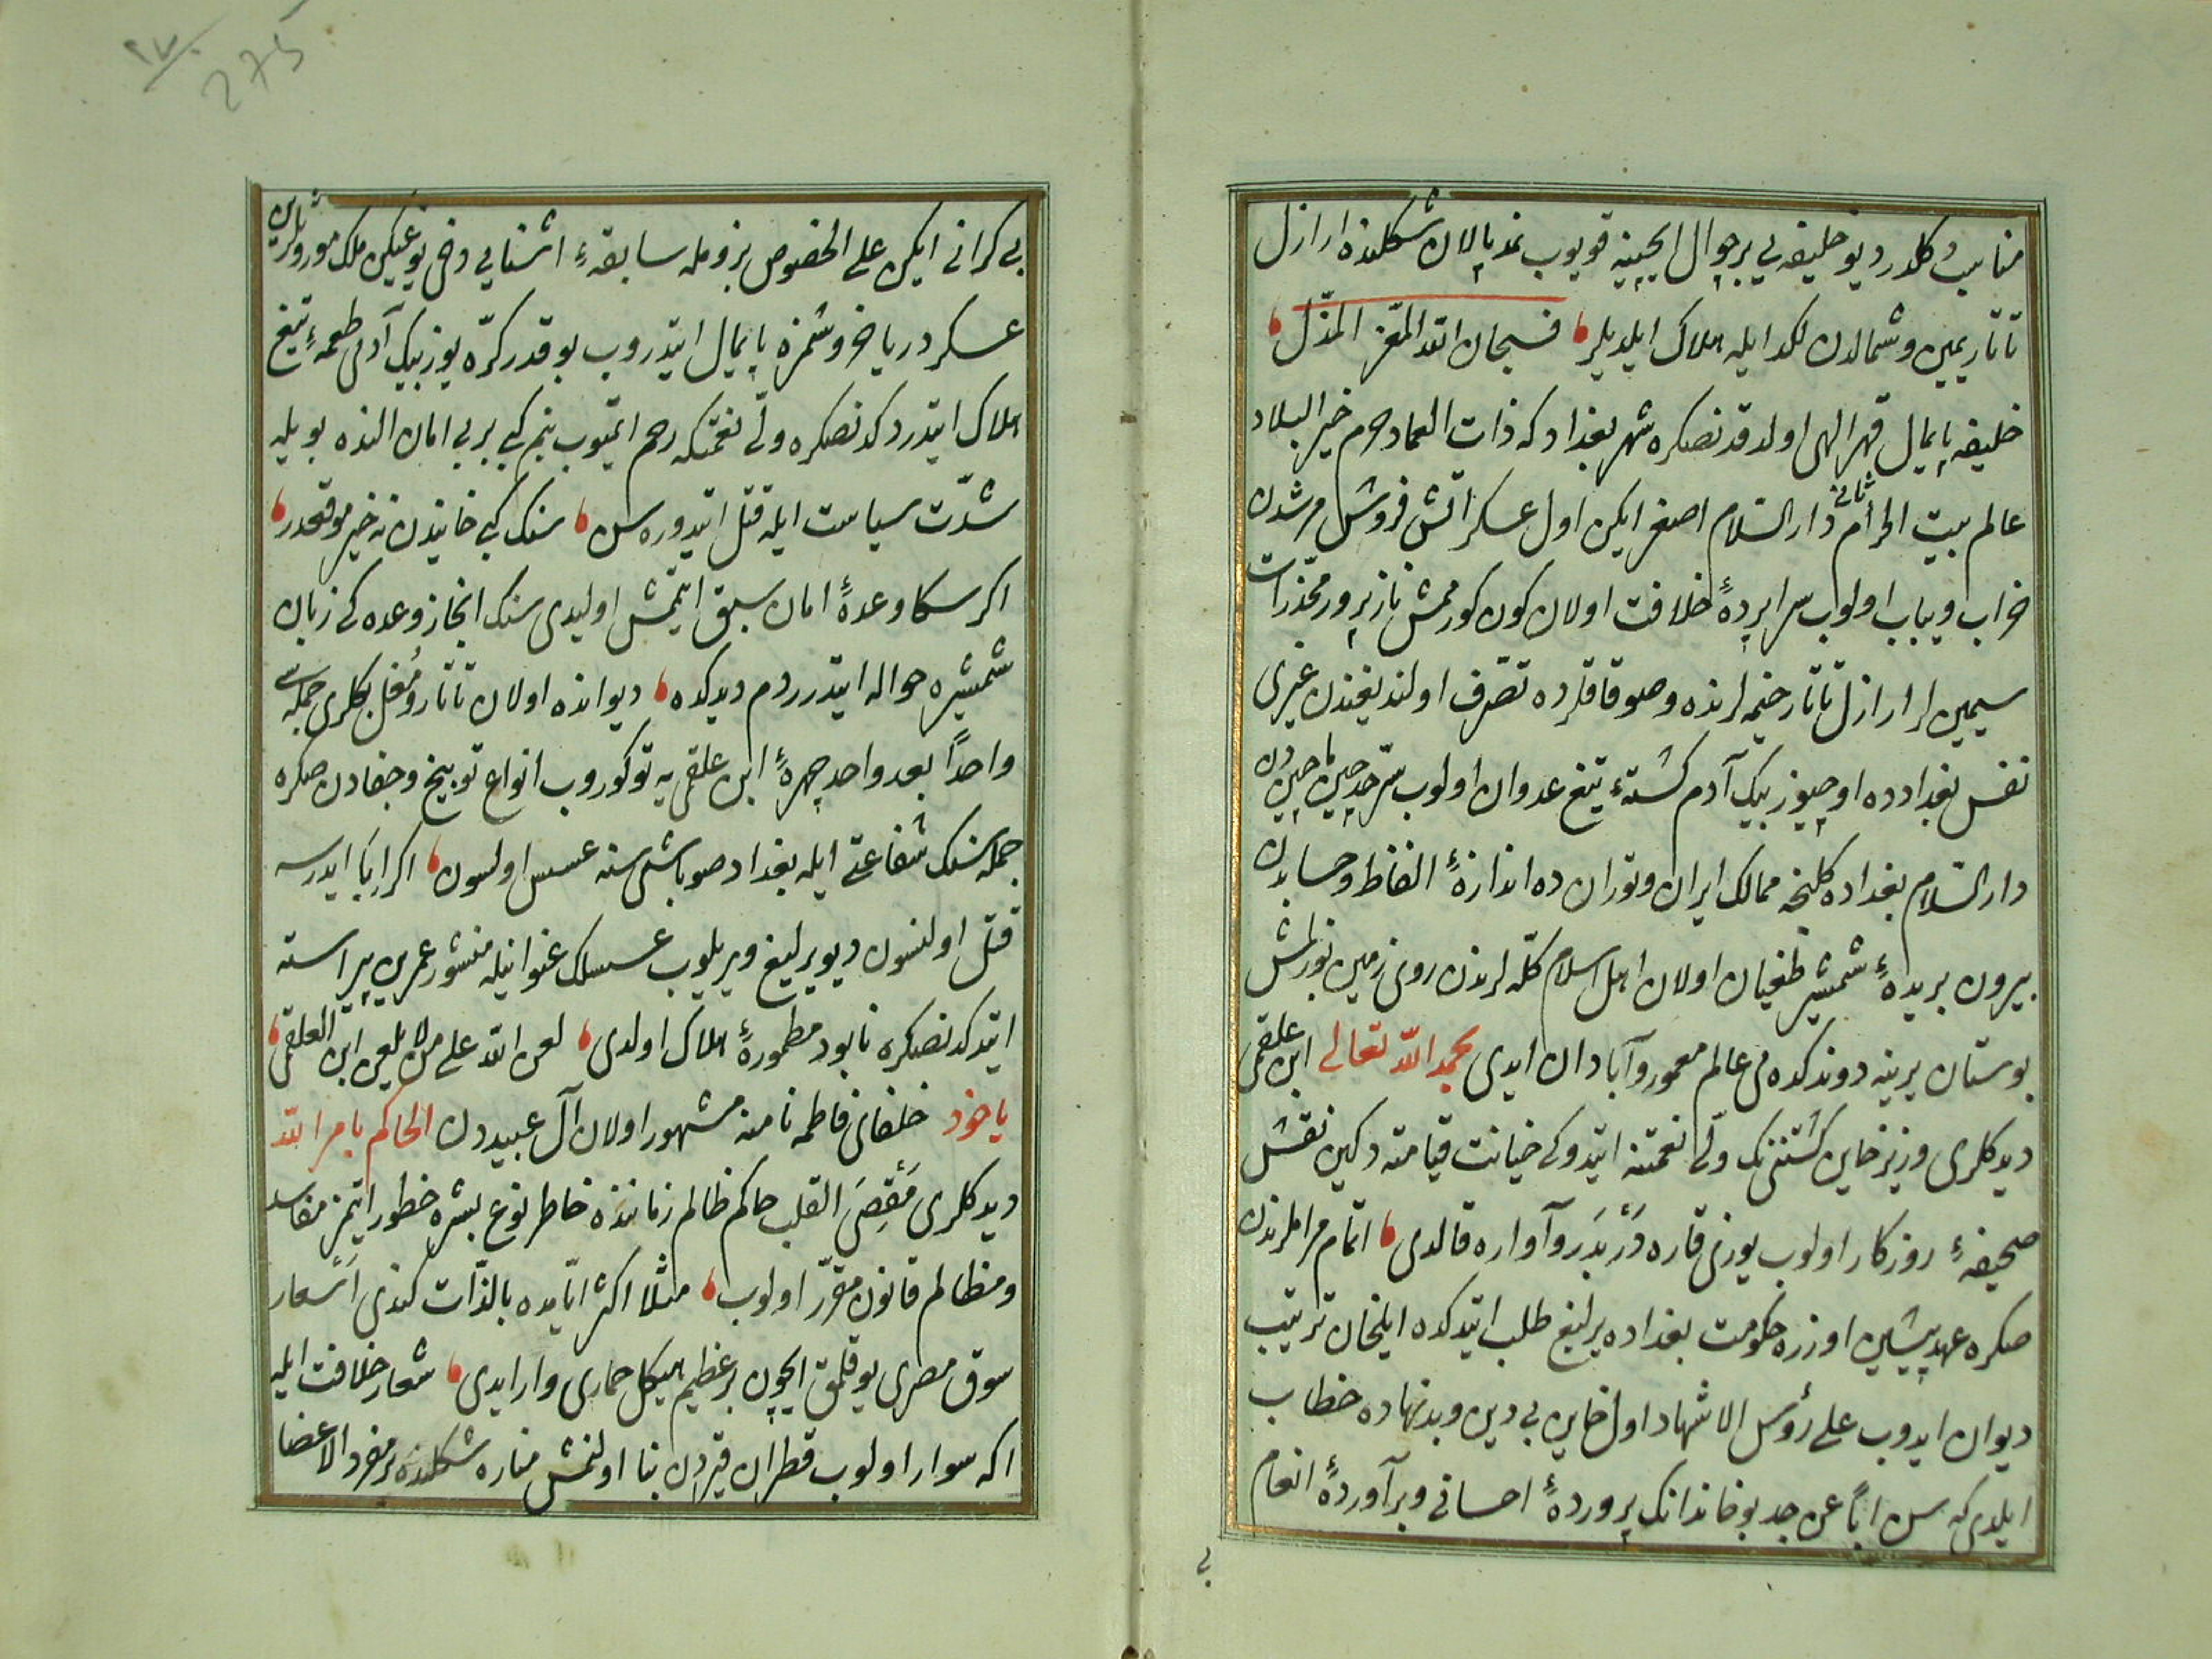 مناسب دكلدر ديو خليفه يى بر چوال ايچينه قويوب نمد پالان شكلنده اراذل
تاتار يمين وشمالدن لكد ايله هلاك ايلديلر فسبحان الله المعز المذل
خليفه پايمال قهر الهى اولدقدنصكره شهر بغداد كه ذات العماد حرم خير البلاد
عالم بيت الحرام ثانى دار السلام اصغر ايكن اول عسكر آتش فروش مرشدن
خراب ويباب اولوب سراپرده خلافت اولان كون كورممش نازپرور مخدرات
سيمين لر اراذل تاتار خيمه لرنده وصوقاقلرده تصرف اولنديغندن غيرى
نفس بغدادده اوچيوز بيك آدم كشته تيغ عدوان اولوب سرحد چين ماچين دن
دار السلام بغداده كلنجه ممالك ايران وتوران ده اندازه الفاظ وحسابدن
بيرون بريده شمشير طغيان اولان اهل اسلام كله لرندن روى زمين بوزلمش
بوستان يرينه دوندكده مى عالم معمور وآبادان ايدى بحمد الله تعالى ابن علقمى
ديدكلرى وزير خاين كشتنىنك ولى نعمتنه ايتدوكى خيانت قيامته دكين نقش
صحيفه روزكار اولوب يوزى قاره دربدر وآواره قالدى اتمام مراملرندن
صكره عهد پيشين اوزره حكومت بغداده يرليغ طلب ايتدكده ايلخان ترتيب
ديوان ايدوب على رؤس الاشهاد اول خاين بى دين وبدنهاده خطاب
ايلدى كه سن اباً عن جد بو خاندانك پرورده احسانى وبرآورده انعام
بى
بى كرانى ايكن على الخصوص بزومله سابقه اشنايى دخى يوغيكن ملك موروثلرين
عسكر درياخروشمزه پايمال ايتدروب بو قدر كره يوز بيك آدمى طعمه تيغ
هلاك ايتدردكدنصكره ولى نعمتكه رحم ايتميوب بنم كبى بر بى امان النده بويله
شدت سياست ايله قتل ايتدوره سن سنك كبى خايندن نه خير متوقعدر
اكر سكا وعده امان سبق ايتمش اولميدى سنك انجاز وعده كى زبان
شمشيره حواله ايتدرردم ديدكده ديوانده اولان تاتار ومغل بكلرى جمله سى
واحداً بعد واحد چهره ابن علقمى يه توكوروب انواع توبيخ وجفادن صكره
جمله سنك شفاعتى ايله بغداد صوباشى سنه عسس اولسون اكر ابا ايدرسه
قتل اولنسون ديو يرليغ ويريلوب عسسلك عنوانيله منشور عمرين پيراسته
ايتدكدنصكره نابود مطموره هلاك اولدى لعن الله على من لا يلعن ابن العلقمى
ياخود خلفاى فاطمه نامنه مشهور اولان آل عبيددن الحاكم بامر الله
ديدكلرى مقصى القلب حاكم ظالم زماننده خاطر نوع بشره خطور ايتمز مفاسد
ومظالم قانون مقرر اولوب مثلا اكثر اياميده بالذات كندى اسعار
سوق مصرى يوقلمق ايچون بر عظيم الهيكل حمارى وار ايدى شعار خلافت ايله
اكه سوار اولوب قطران قيردن بنا اولنمش مناره شكلنده بر مفرد الاعضا
٢٧٠
275